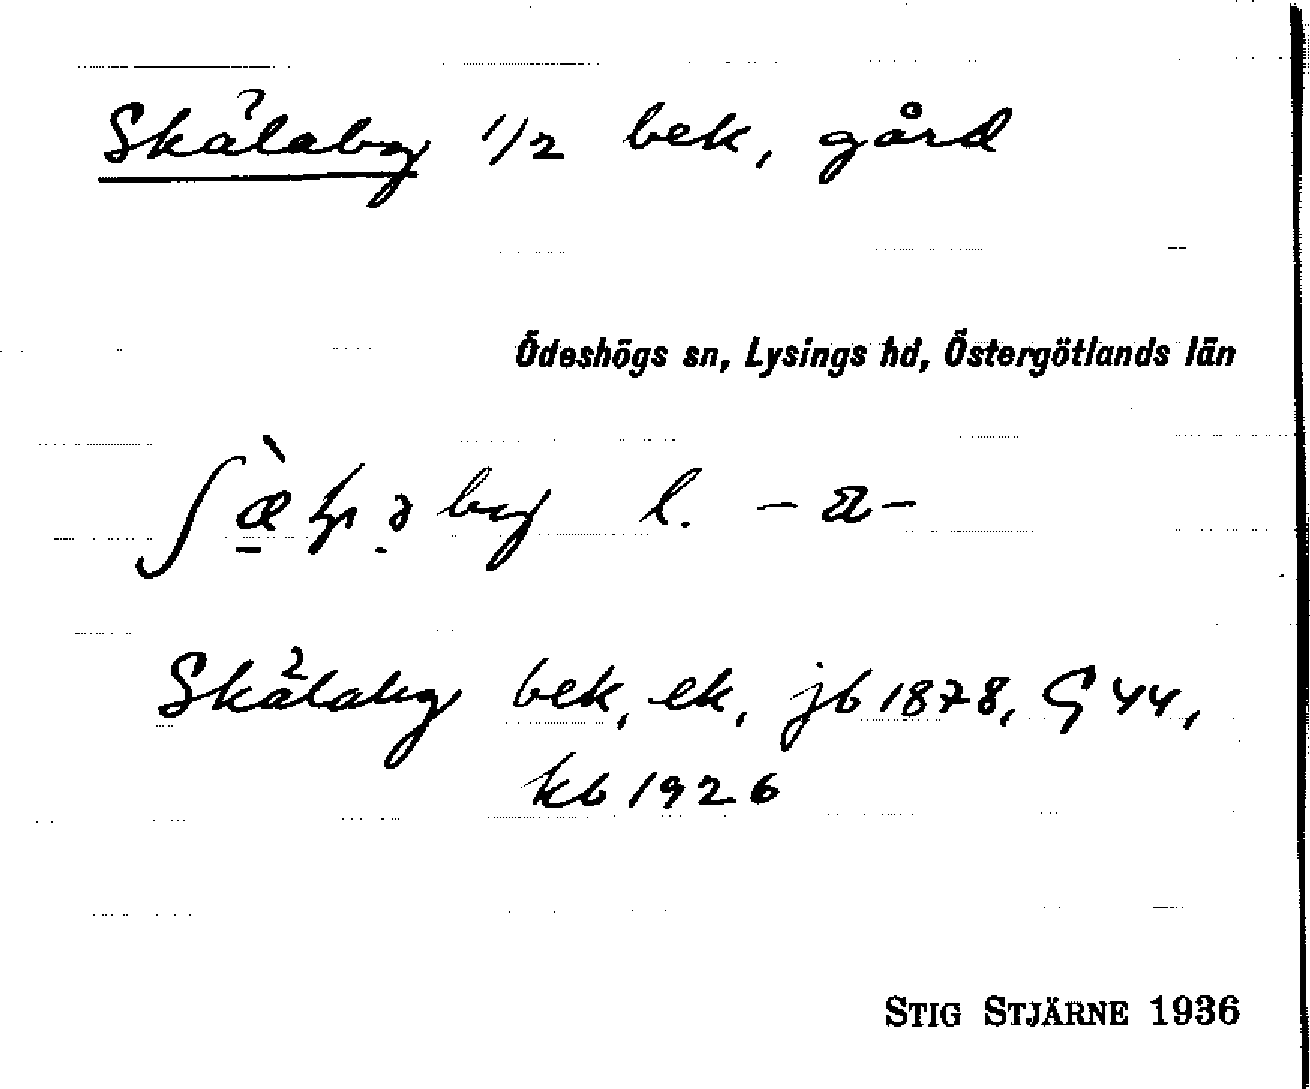 Skälaby 1/2 bek, gård
Ödeshögs sn, Lysings hd, Östergötlands län
by l. -a-
Skälaby bek, ek, jb 1878, G 44,
kb 1926
STIG STJÄRNE 1936